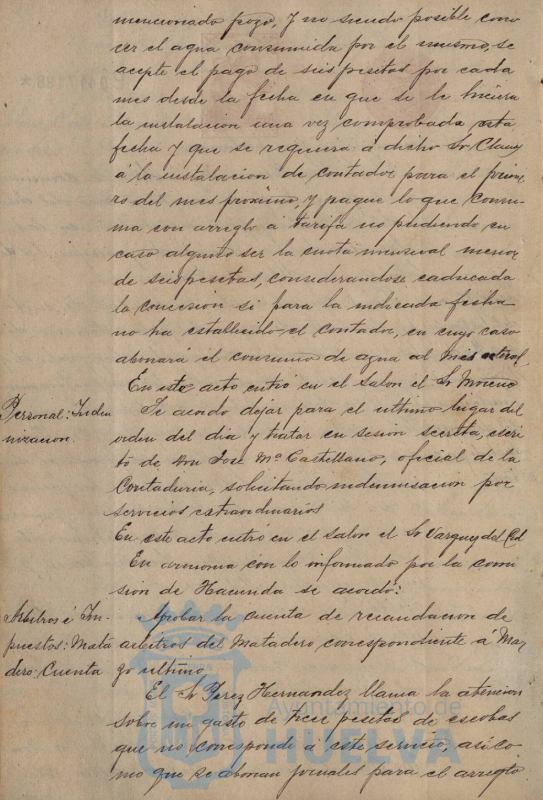 mencionado pozo, y no siendo posible cono
cer el agua consumida por el mismo, se
acepte el pago de seis pesetas por cada
mes desde la fecha en que se le hiciera
la instalacion una vez comprobada esta
fecha y que se requiera á dicho Sr Clauss
á la instalacion de contador para el prime
ro del mes proximo, y pague lo que consu-
ma con arreglo á tarifa no pudiendo en
caso alguno ser la cuota mensual menor
de seis pesetas, considerandose caducada
la concesion si para la indicada fecha
no ha establecido el contador, en cuyo caso
abonará el consumo de agua al mes actual.
En este acto entró en el Salon el Sr Moreno
Personal: Indem
nizacion.
Se acordo dejar para el ultimo lugar del
orden del dia y tratar en sesión secreta, escri
to de Don José Mª Castellano, oficial de la
Contaduria, solicitando indemnisacion por
servicios extraordinarios
En este acto entró en el Salon el Sr Vargues del Cid
En armonia con lo informado por la comi
sión de Hacienda se acordó:
Arbitros é Im-
puestos: Mata
dero: Cuenta
Aprobar la cuenta de recaudacion de
arbitros del Matadero correspondiente a Mar
zo ultimo.
El Sr Perez Hernandez llama la atencion
sobre un gasto de trece pesetas de escobas
que no corresponde á este servicio, asi co
mo que se abonan jornales para el arreglo
Ayuntamiento de
HUELVA